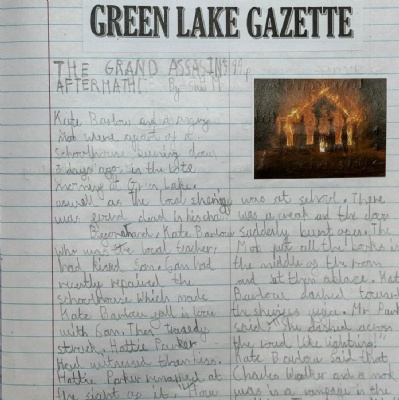 GREEN LAKE GAZETTE
THE GRAND ASSASIN
AFTERMATH By
Kate Barlow and a angry
Mob were apart of a
schoolhouse burning down
3 days ago in the late
morning at Green Lake,
aswell as the local
was found dead in his chair
Kate Barlow
who was the local teacher,
had kissed Sam. Sam had
recently repaired the
schoolhouse which made
Kate Barlow fall in love
with Sam. Then tragedy
struck. Hattie Parker
Had witnessed their kiss.
Hattie Parker remarked at
the sight of it. "How
was at school. There
was a creak and the door
Suddenly burst open. The
Mob put all the books in
the middle of the room
and set them ablaze. Kate
Barlow dashed
the office. Mr
said "She dashed across
the road like lightning."
Kate Barlow said that
Charles Walker and a mob
was on a rampage in the